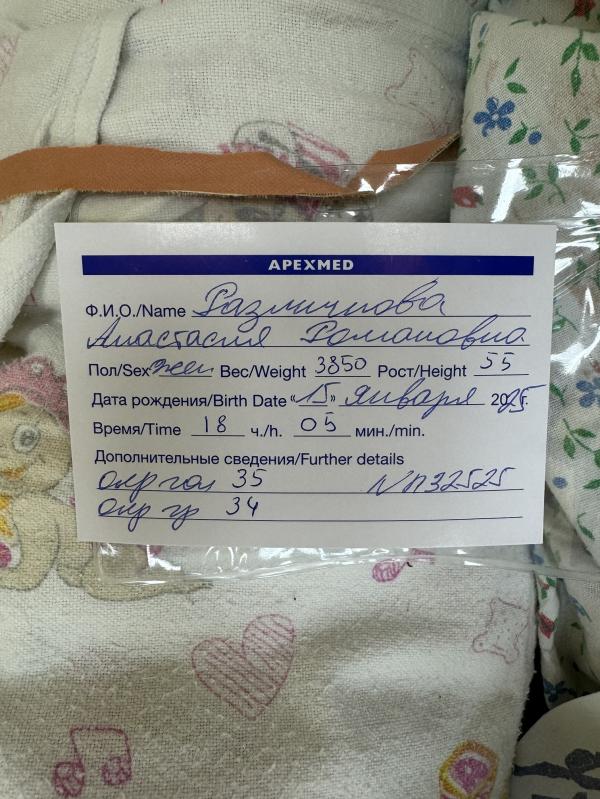 APEXMED
Ф.И.О./Name Различнова
Анастасия Романовна
Пол/Sex жен Вес/Weight 3850 Рост/Height 55
Дата рождения/Birth Date «15» января 2025г.
Время/Time 18 ч./h. 05 мин./min.
Дополнительные сведения/Further details
окр гол 35 N п32525
окр гр 34